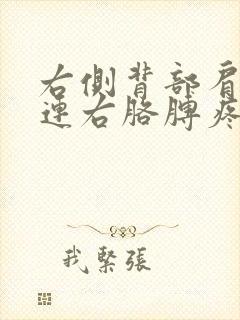 右側背部肩
連右胳膊疼
我緊張